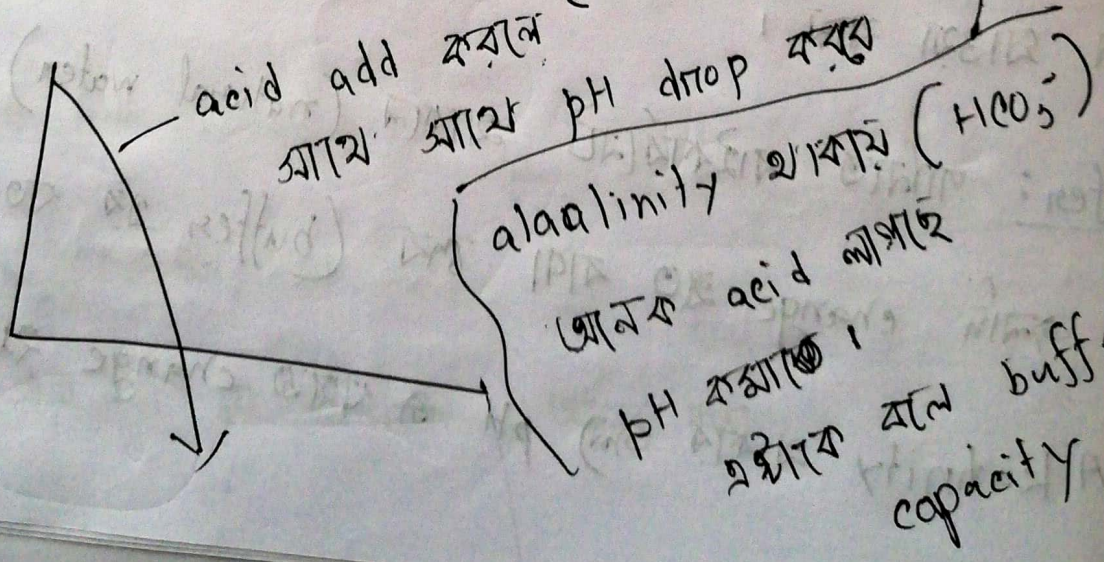 acid add করলে
সাথে সাথে pH drop করবে
alaalinity থাকায় (HCO3-)
অনেক acid লাগছে
pH কমাতে।
এটাকে বলে buff
capacity